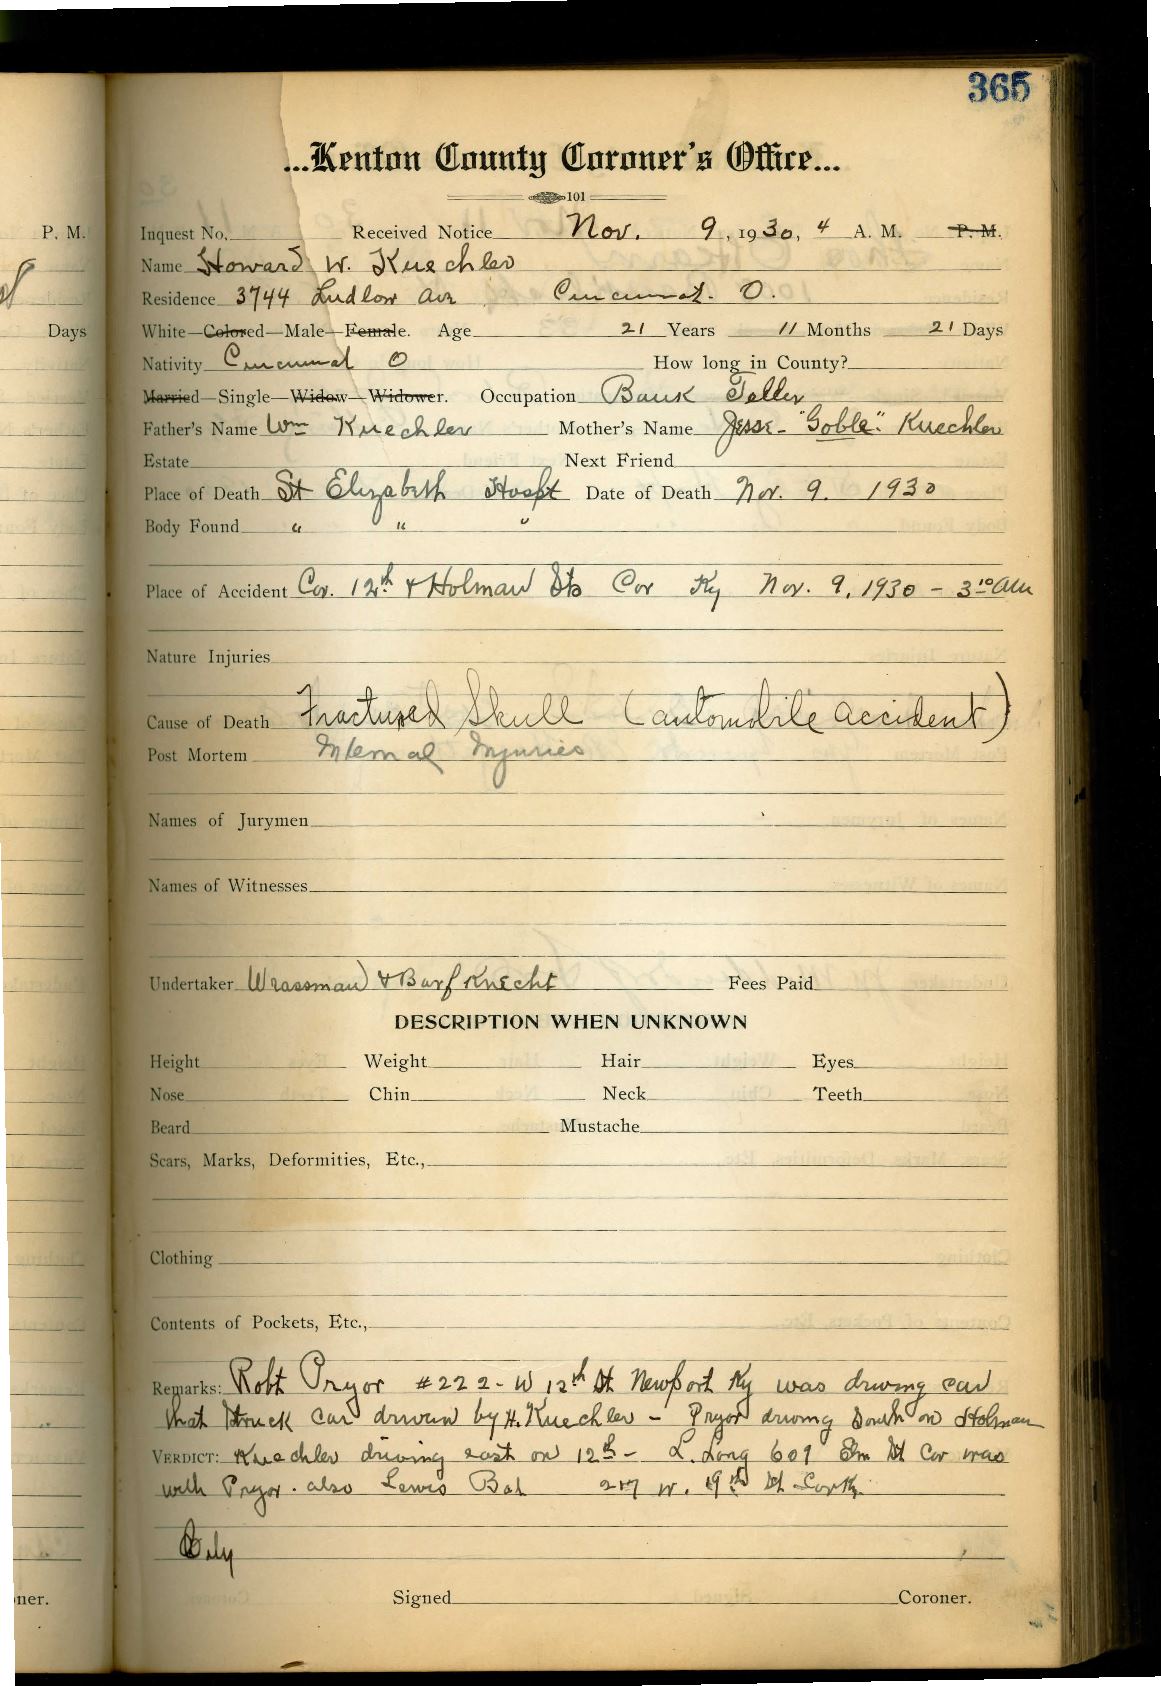 365
...Kenton County Coroner's Office...
101
P. M.
Inquest No. Received Notice Nov. 9, 1930, 4 A. M. P. M.
Name Howard W. Kuechler
Residence 3744 Ludlow Ave Cincinnat. O.
Days
White—Colored—Male—Female. Age 21 Years 11 Months 21 Days
Nativity Cincinnat O How long in County?
Married—Single—Widow—Widower. Occupation Bank Teller
Father's Name Wm Kuechler Mother's Name Jesse - "Goble" Kuechler
Estate Next Friend
Place of Death St Elizabeth Hospt Date of Death Nov. 9. 1930
Body Found " " "
Place of Accident Cor. 12th & Holman Sts Cov Ky Nov. 9, 1930 - 3 10 AM
Nature Injuries
Cause of Death Fractured Skull (automobile accident)
Post Mortem Internal Injuries
Names of Jurymen
Names of Witnesses
Undertaker Wrassman & Barfknecht Fees Paid
DESCRIPTION WHEN UNKNOWN
Height Weight Hair Eyes
Nose Chin Neck Teeth
Beard Mustache
Scars, Marks, Deformities, Etc.,
Clothing
Contents of Pockets, Etc.,
Remarks: Robt Pryor #222 - W 12th St Newport Ky was driving car
that struck car driven by H. Kuechler - Pryor driving South on Holman
VERDICT: Kuechler driving east on 12th - L. Long 609 St Cov was
with Pryor. also Lewis 217 W. 19th St
oner.
Signed Coroner.